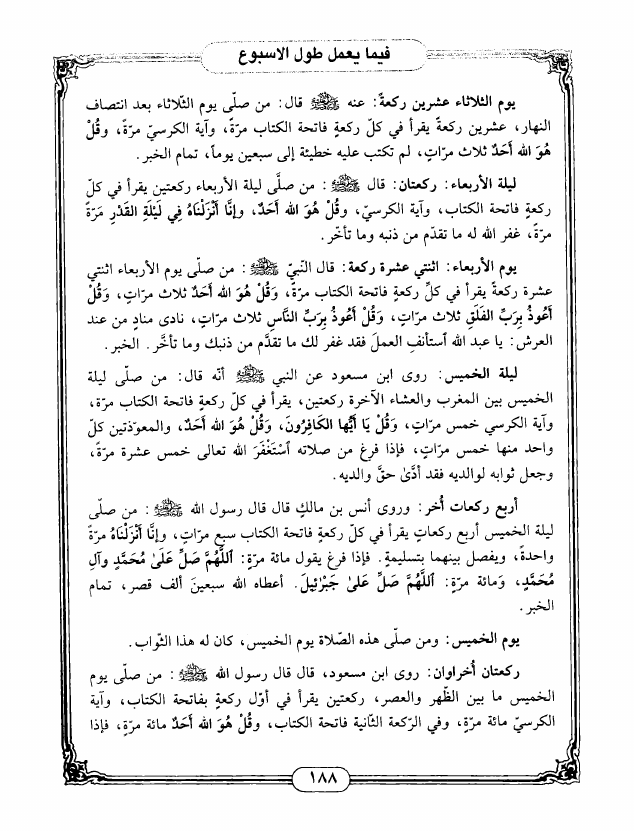 فيما يعمل طول الاسبوع
يوم الثلاثاء عشرين ركعةً: عنه ﷺ قال: من صلّى يوم الثّلاثاء بعد انتصاف
النهار، عشرين ركعةً يقرأ في كلّ ركعةٍ فاتحة الكتاب مرّةً، وآية الكرسيّ مرّةً، وقُلْ
هُوَ الله أَحَدٌ ثلاث مرّاتٍ، لم تكتب عليه خطيئة إلى سبعين يوماً، تمام الخبر.
ليلة الأربعاء: ركعتان: قال ﷺ: من صلَّى ليلة الأربعاء ركعتين يقرأ في كلّ
ركعةٍ فاتحة الكتاب، وآية الكرسيّ، وقُلْ هُوَ الله أَحَدٌ، وإنَّا أَنْزَلْنَاهُ فِي لَيْلَةِ القَدْرِ مَرّةً
مرّةً، غفر الله له ما تقدّم من ذنبه وما تأخّر.
يوم الأربعاء: اثنتي عشرة ركعة: قال النّبيّ ﷺ: من صلّى يوم الأربعاء اثنتي
عشرة ركعةً يقرأ في كلِّ ركعةٍ فاتحة الكتاب مرّةً، وَقُلْ هُوَ الله أَحَدٌ ثلاث مرّاتٍ، وَقُلْ
أَعُوذُ بِرَبِّ الفَلَقِ ثلاث مرّاتٍ، وَقُلْ أَعُوذُ بِرَبِّ النَّاسِ ثلاث مرّاتٍ، نادى منادٍ من عند
العرش: يا عبد الله اَستأنفِ العملَ فقد غفر لك ما تقدَّم من ذنبك وما تأخَّر. الخبر.
ليلة الخميس: روى ابن مسعود عن النبي ﷺ أنّه قال: من صلّى ليلة
الخميس بين المغرب والعشاء الآخرة ركعتين، يقرأ في كلّ ركعةٍ فاتحة الكتاب مرّة،
وآية الكرسي خمس مرّاتٍ، وقُلْ يَا أَيُّها الكَافِرُونَ، وَقُلْ هُوَ الله أَحَدٌ، والمعوّذتين كلّ
واحد منها خمس مرّاتٍ، فإذا فرغ من صلاته اَسْتَغْفَرَ الله تعالى خمس عشرة مرّةً،
وجعل ثوابه لوالديه فقد أدَّىٰ حقَّ والديه.
أربع ركعات أُخر: وروي أنس بن مالكٍ قال قال رسول الله ﷺ: من صلّى
ليلة الخميس أربع ركعاتٍ يقرأ في كلّ ركعةٍ فاتحة الكتاب سبع مرّاتٍ، وإنَّا أَنْزَلْنَاهُ مرّةً
واحدةً، ويفصل بينهما بتسليمةٍ. فإذا فرغ يقول مائة مرّة: اَللَّهُمَّ صَلِّ عَلَىٰ مُحَمَّدٍ وآلِ
مُحَمَّدٍ، وَمائة مرّة: اَللَّهُمَّ صَلِّ عَلىٰ جَبْرَئِيلَ. أعطاه الله سبعينَ ألف قصر، تمام
الخبر.
يوم الخميس: ومن صلّى هذه الصّلاة يوم الخميس، كان له هذا الثّواب.
ركعتان أُخراوان: روى ابن مسعود، قال قال رسول الله ﷺ: من صلّى يوم
الخميس ما بين الظّهر والعصر، ركعتين يقرأ في أوّل ركعةٍ بفاتحة الكتاب، وآية
الكرسيّ مائة مرّةٍ، وفي الرّكعة الثّانية فاتحة الكتاب، وقُلْ هُوَ الله أَحَدٌ مائة مرّةٍ، فإذا
١٨٨